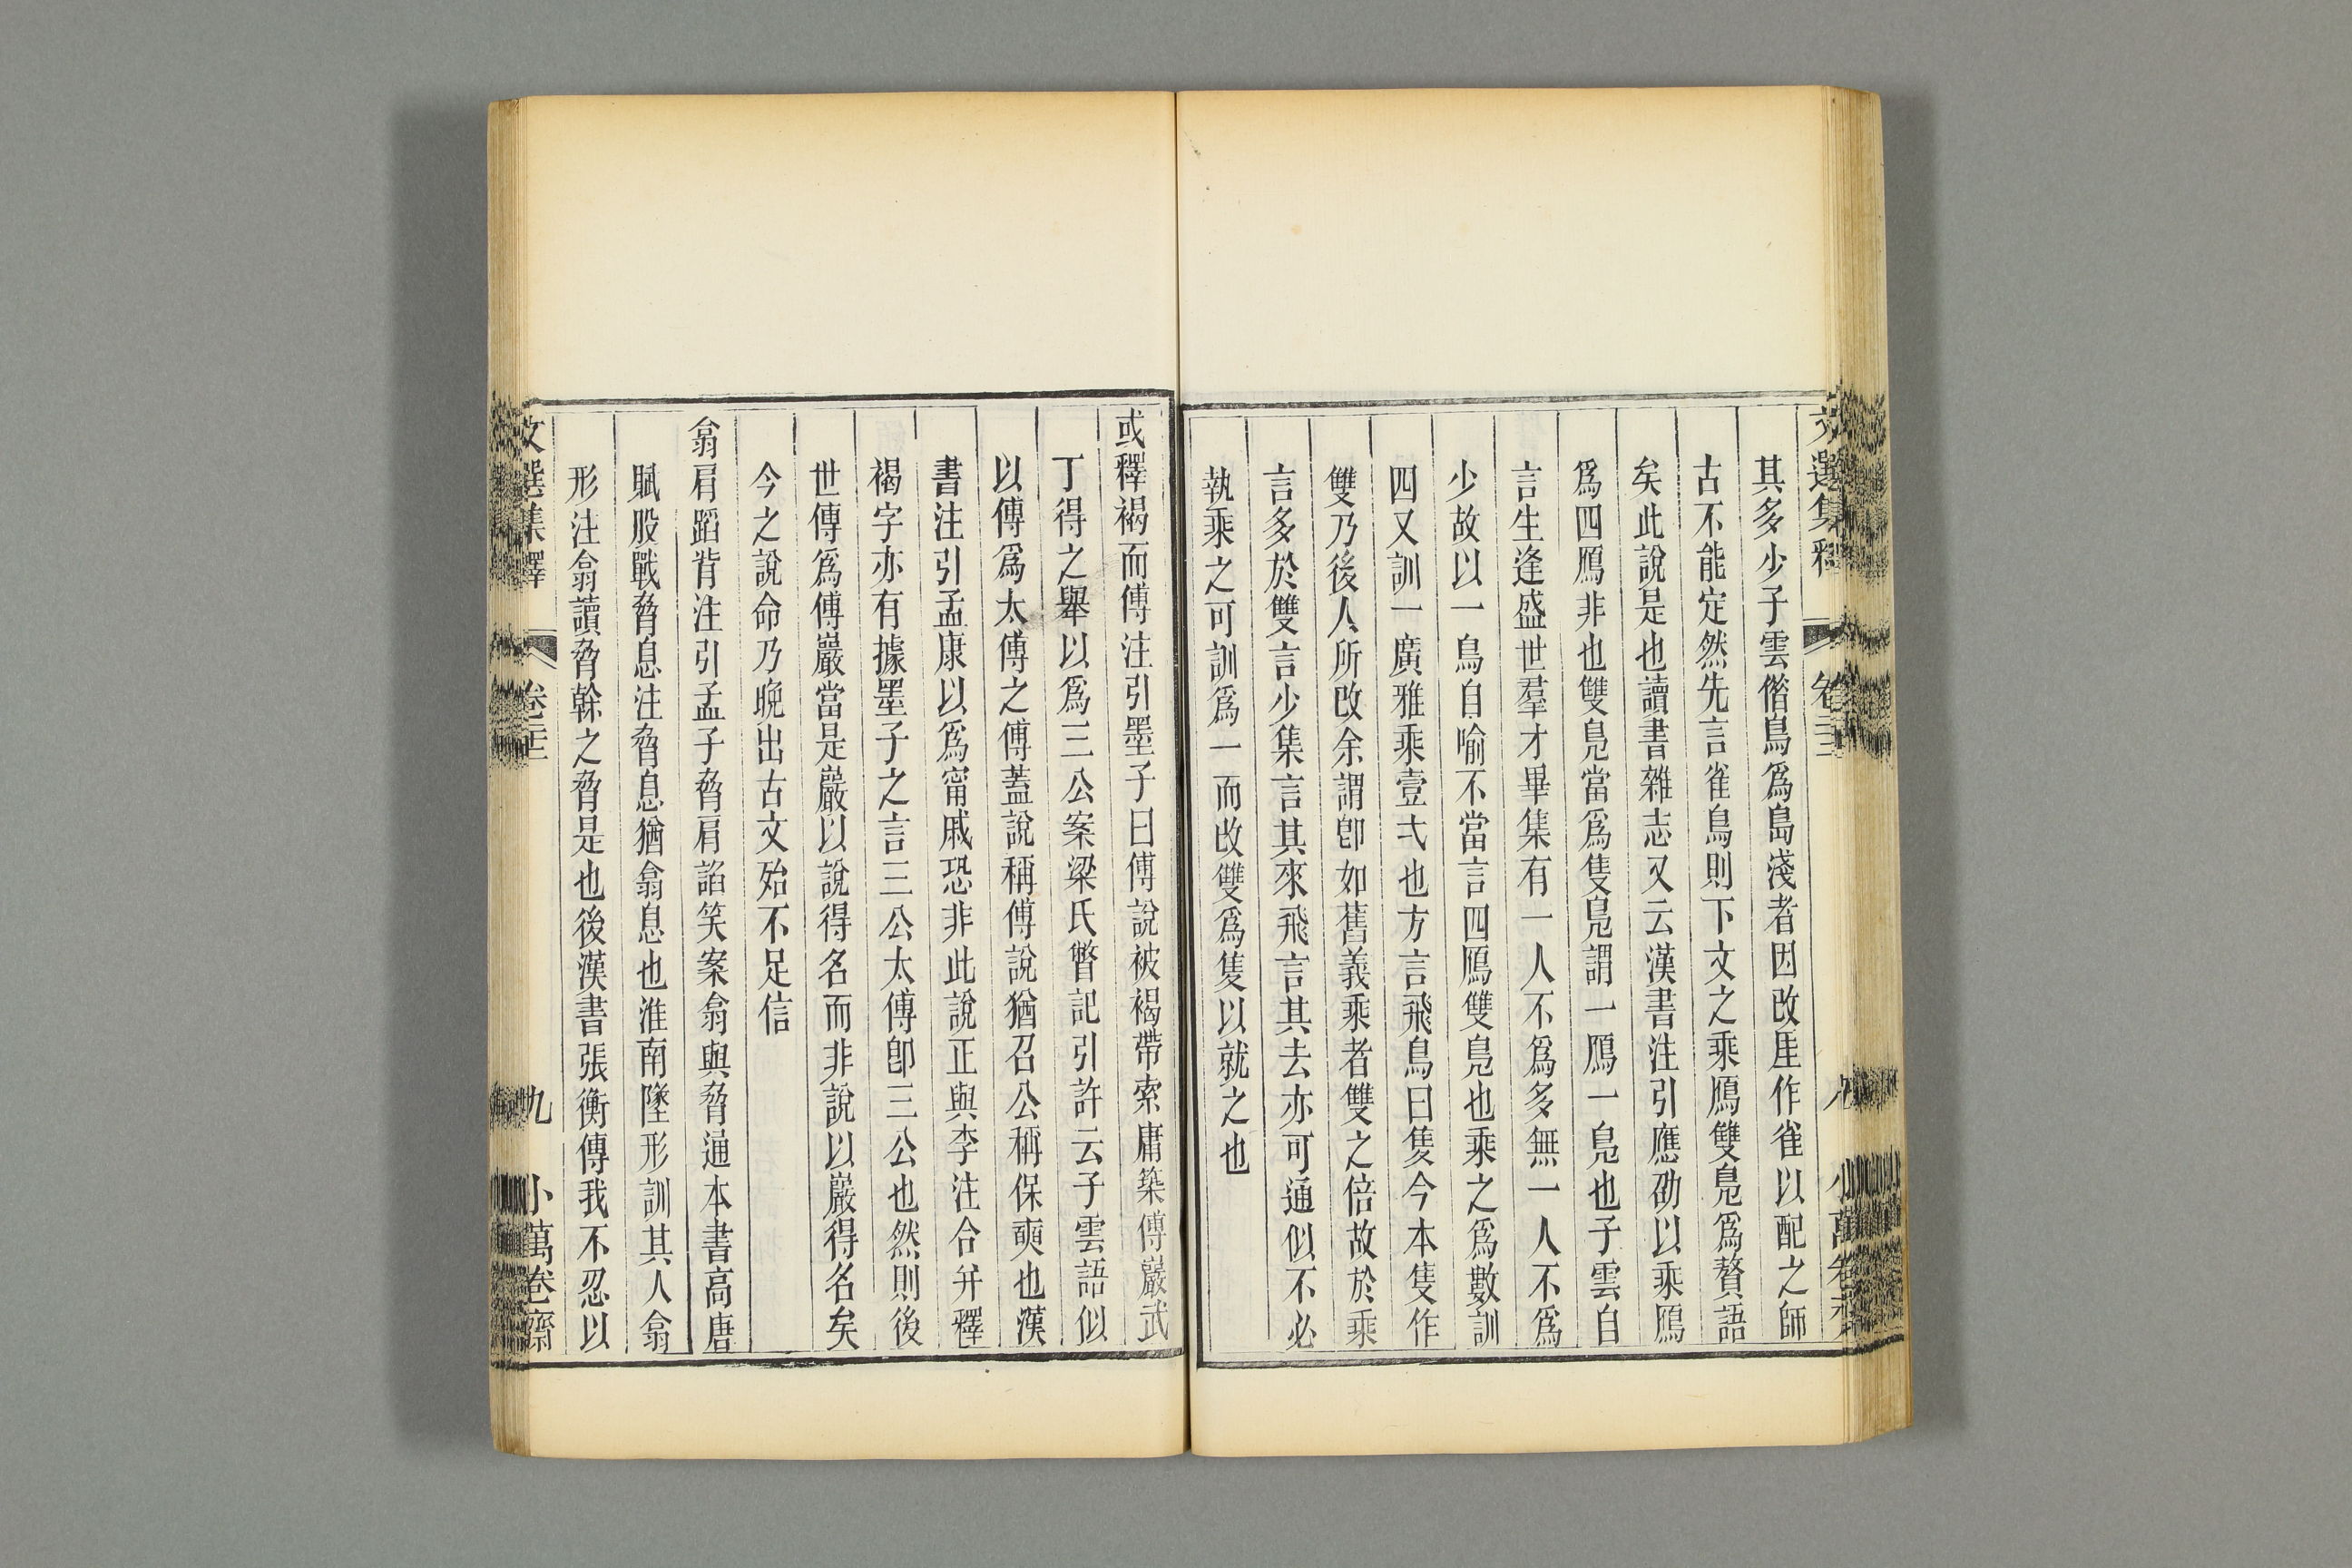 文選集釋 卷二十二 八 小萬卷齋
其多少子雲偕鳥爲島淺者因改厓作雀以配之師
古不能定然先言雀鳥則下文之乘鴈雙鳧爲贅語
矣此說是也讀書雜志又云漢書注引應劭以乘鴈
爲四鴈非也雙鳧當爲隻鳧謂一鴈一鳧也子雲自
言生逢盛世羣才畢集有一人不爲多無一人不爲
少故以一鳥自喻不當言四鴈雙鳧也乘之爲數訓
四又訓一廣雅乘壹弌也方言飛鳥曰隻今本隻作
雙乃後人所改余謂卽如舊義乘者雙之倍故於乘
言多於雙言少集言其來飛言其去亦可通似不必
執乘之可訓爲一而改雙爲隻以就之也
或釋褐而傅注引墨子曰傅說被褐帶索庸築傅巖武
丁得之舉以爲三公案梁氏瞥記引許云子雲語似
以傅爲太傅之傅蓋說稱傅說猶召公稱保奭也漢
書注引孟康以爲甯戚恐非此說正與李注合并釋
褐字亦有據墨子之言三公太傅卽三公也然則後
世傳爲傅巖當是巖以說得名而非說以巖得名矣
今之說命乃晚出古文殆不足信
翕肩蹈背注引孟子脅肩諂笑案翕與脅通本書高唐
賦股戰脅息注脅息猶翕息也淮南墬形訓其人翕
形注翕讀脅榦之脅是也後漢書張衡傳我不忍以
文選集釋 卷二十二 九 小萬卷齋